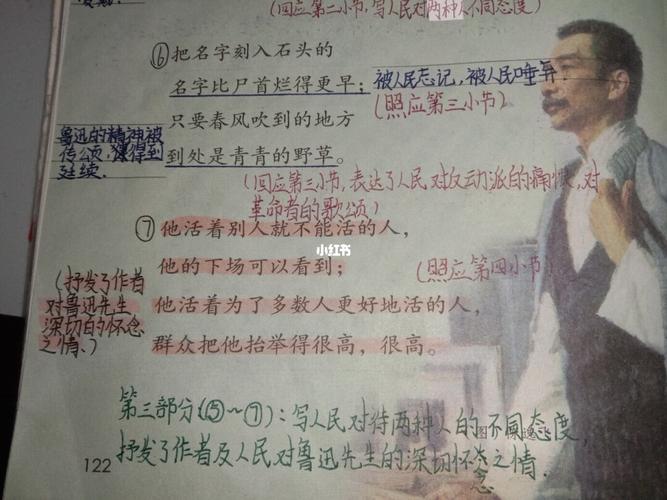 (回应第二小节,写人民对两种人不同态度)
⑥把名字刻入石头的
名字比尸首烂得更早;
被人民忘记,被人民唾弃.
(照应第三小节)
只要春风吹到的地方
鲁迅的精神被
传颂,獲得到
延续.
到处是青青的野草。
(回应第三小节,表达了人民对反动派的痛恨,对
革命者的歌颂)
⑦他活着别人就不能活的人,
小红书
他的下场可以看到;
(照应第四小节)
(抒发了作者
对鲁迅先生
深切的怀念
之情.)
他活着为了多数人更好地活的人,
群众把他抬举得很高,很高。
第三部分(⑤~⑦):写人民对待两种人的不同态度,
抒发了作者及人民对鲁迅先生的深切怀念之情.
122